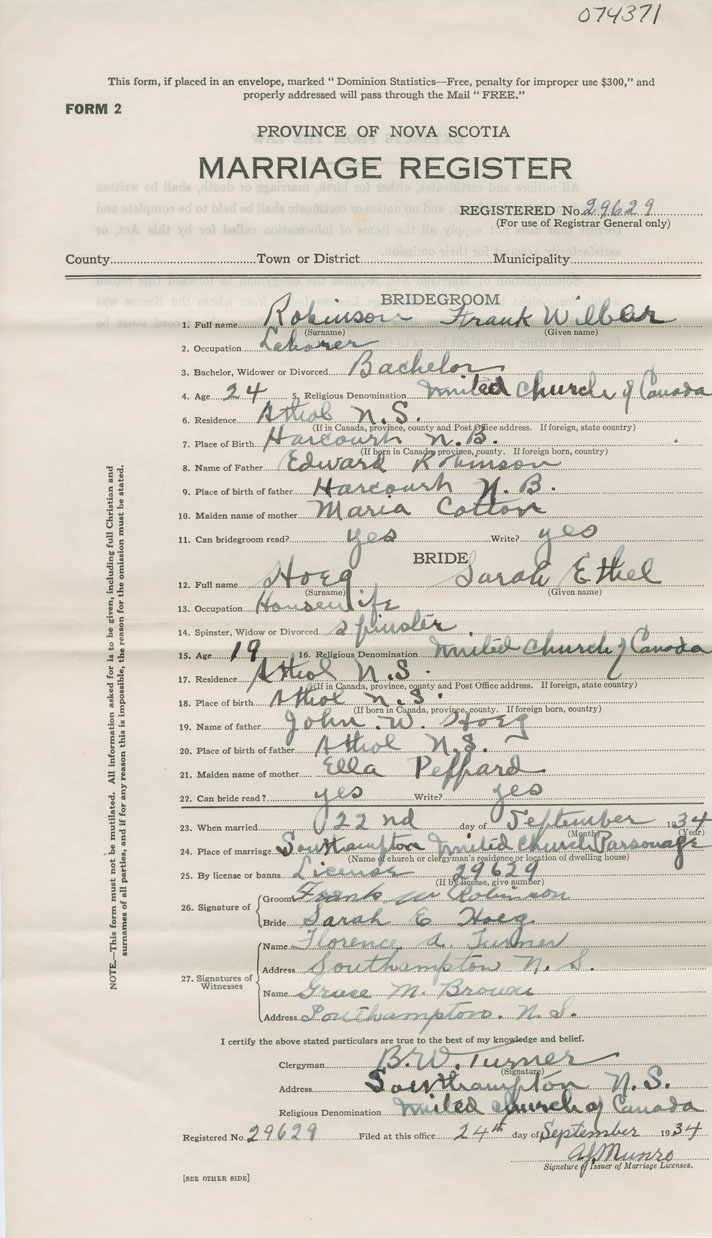 074371
This form, if placed in an envelope, marked "Dominion Statistics—Free, penalty for improper use $300," and
properly addressed will pass through the Mail "FREE."
FORM 2
PROVINCE OF NOVA SCOTIA
MARRIAGE REGISTER
REGISTERED No. 29629
(For use of Registrar General only)
County Town or District Municipality
BRIDEGROOM
1. Full name Robinson Frank Wilbar
(Surname) (Given name)
2. Occupation Laborer
3. Bachelor, Widower or Divorced Bachelor
4. Age 24 5. Religious Denomination United Church of Canada
6. Residence Athol N.S.
(If in Canada, province, county and Post Office address. If foreign, state country)
7. Place of Birth Harcourt N.B.
(If born in Canada, province, county. If foreign born, country)
8. Name of Father Edward Robinson
9. Place of birth of father Harcourt N.B.
10. Maiden name of mother Maria Cotton
11. Can bridegroom read? yes Write? yes
BRIDE
12. Full name Hoeg Sarah Ethel
(Surname) (Given name)
13. Occupation Housewife
14. Spinster, Widow or Divorced Spinster
15. Age 19 16. Religious Denomination United Church of Canada
17. Residence Athol N.S.
(If in Canada, province, county and Post Office address. If foreign, state country)
18. Place of birth Athol N.S.
(If born in Canada, province, county. If foreign born, country)
19. Name of father John W. Hoeg
20. Place of birth of father Athol N.S.
21. Maiden name of mother Ella Peppard
22. Can bride read? yes Write? yes
23. When married 22nd day of September 1934
(Month) (Year)
24. Place of marriage Southampton United Church Parsonage
(Name of church or clergyman's residence or location of dwelling house)
25. By license or banns License 29629
(If by license, give number)
26. Signature of Groom Frank W Robinson
Bride Sarah E Hoeg
27. Signatures of Witnesses Name Florence A. Turner
Address Southampton N.S.
Name Grace M. Brown
Address Southampton. N.S.
I certify the above stated particulars are true to the best of my knowledge and belief.
Clergyman B.W. Turner
(Signature)
Address Southampton N.S.
Religious Denomination United Church of Canada
Registered No. 29629 Filed at this office 24th day of September 1934
A J Munro
Signature of Issuer of Marriage Licenses.
[SEE OTHER SIDE]
NOTE.—This form must not be mutilated. All information asked for is to be given, including full Christian and
surnames of all parties, and if for any reason this is impossible, the reason for the omission must be stated.